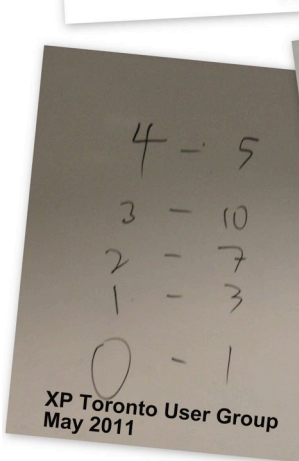 4 - 5
3 - 10
2 - 7
1 - 3
0 - 1
XP Toronto User Group
May 2011